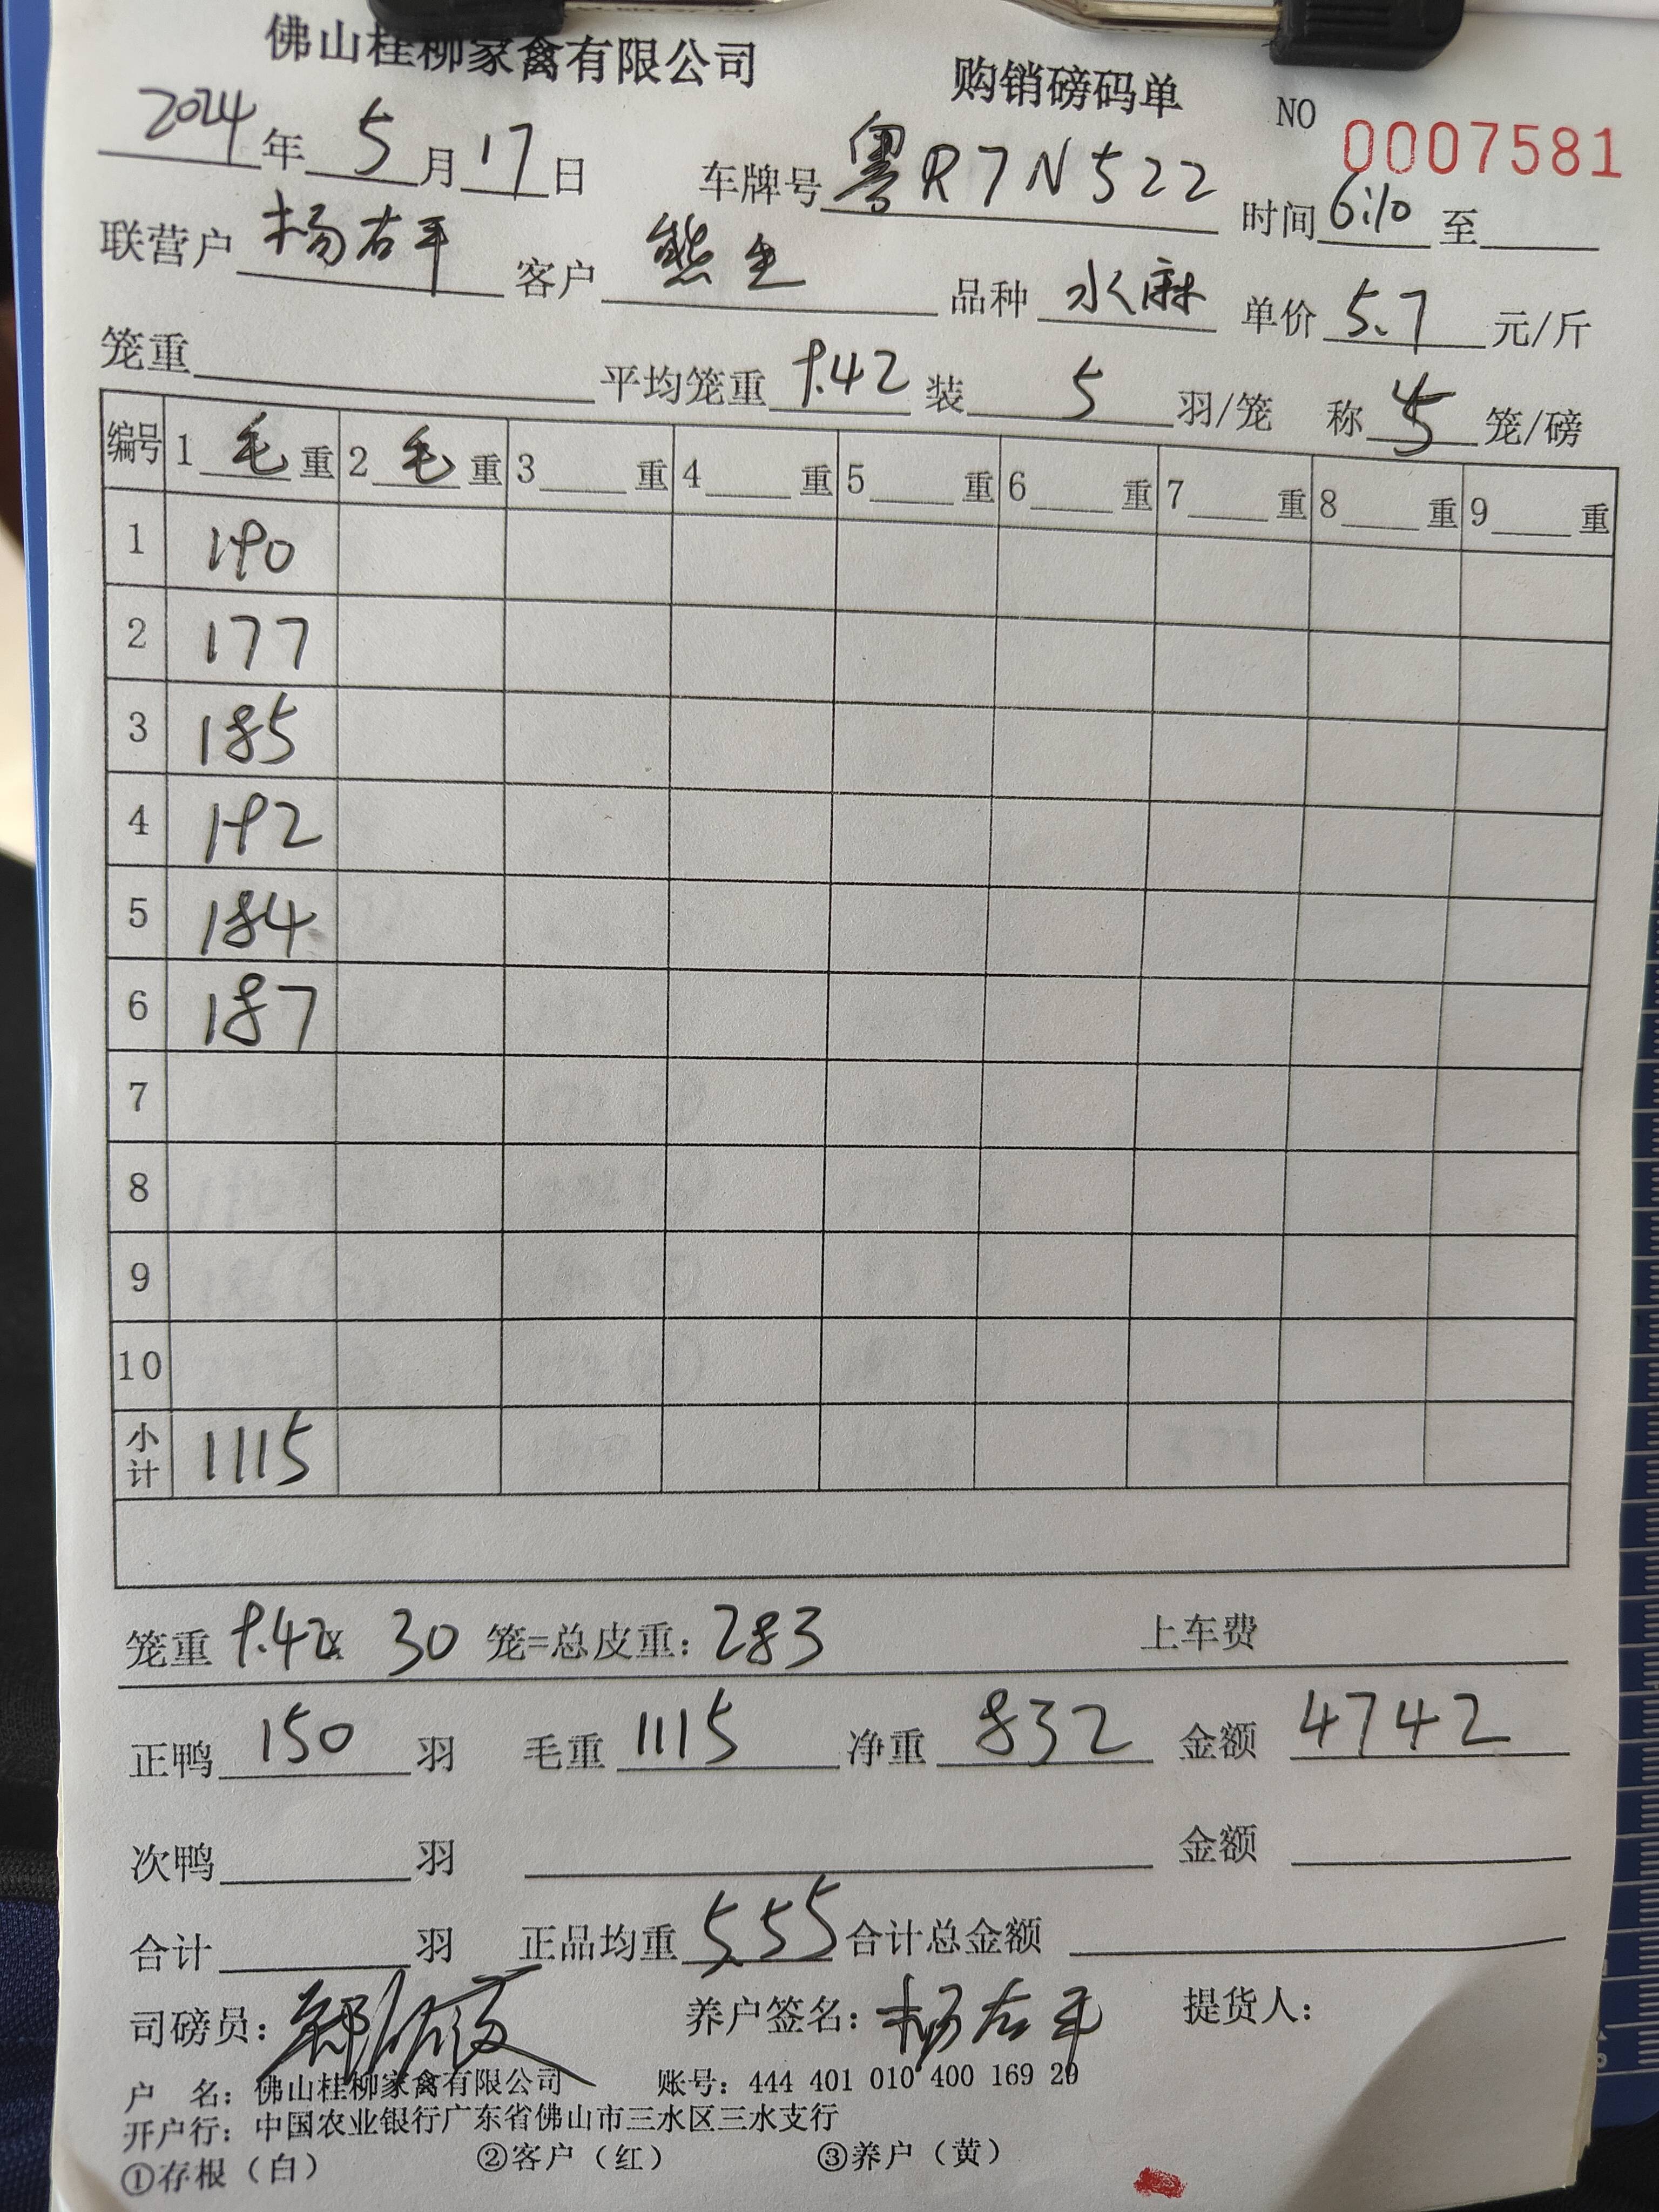 佛山桂柳家禽有限公司 购销磅码单 NO 0007581
2024年5月17日 车牌号 粤R7N522 时间 6:10 至
联营户 杨右平 客户 熊生 品种 水麻 单价 5.7 元/斤
笼重 平均笼重 9.42 装 5 羽/笼 称 5 笼/磅
编号 1 毛 重 2 毛 重 3 重 4 重 5 重 6 重 7 重 8 重 9 重
1 190
2 177
3 185
4 192
5 184
6 187
7
8
9
10
小计 1115
笼重 9.42x 30 笼=总皮重：283 上车费
正鸭 150 羽 毛重 1115 净重 832 金额 4742
次鸭 羽 金额
合计 羽 正品均重 5.55 合计总金额
司磅员： 养户签名：杨右平 提货人：
户 名：佛山桂柳家禽有限公司 账号：444 401 010 400 169 29
开户行：中国农业银行广东省佛山市三水区三水支行
①存根（白） ②客户（红） ③养户（黄）